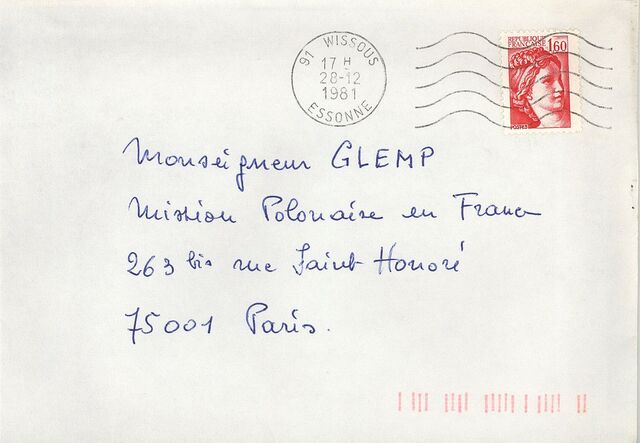 91 WISSOUS
17 H
28-12
1981
ESSONNE
REPUBLIQUE
FRANCAISE
1,60
POSTES
Monseigneur GLEMP
Mission Polonaise en France
263 bis rue Saint-Honoré
75001 Paris.